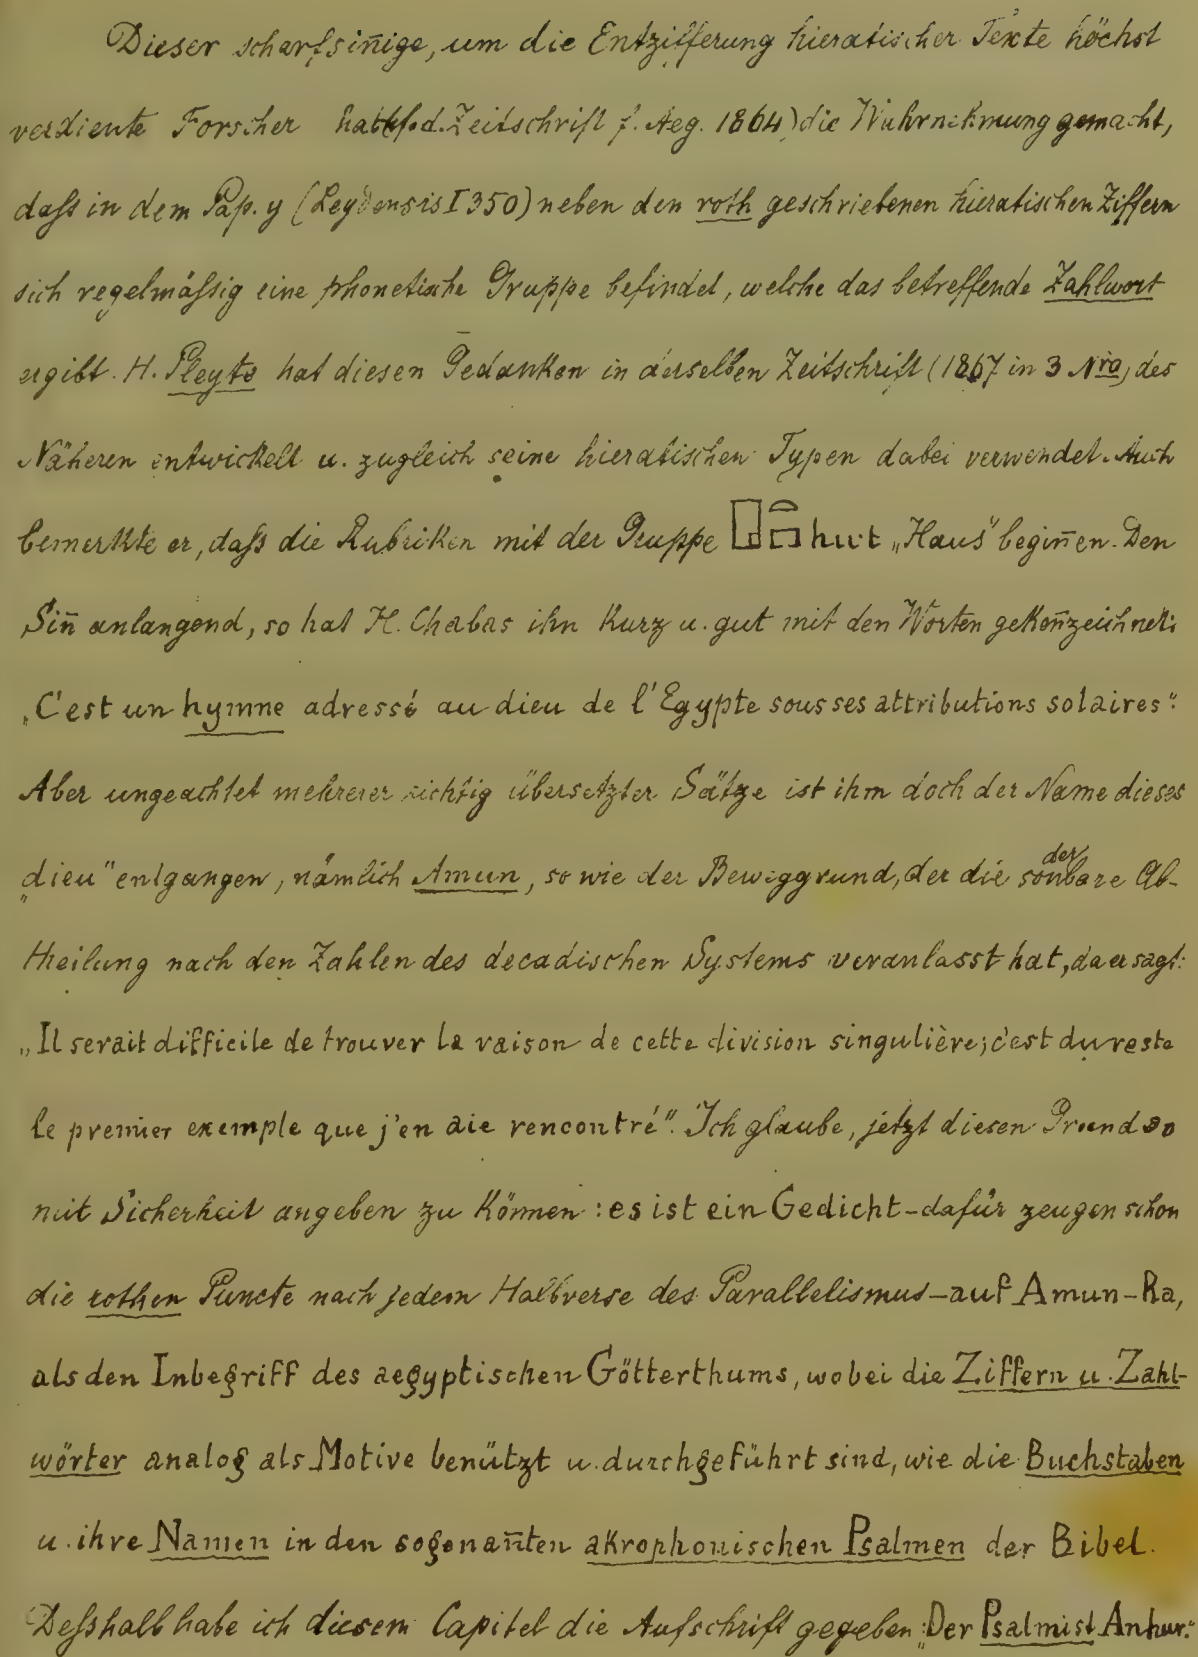 Dieser scharfsin̄ige, um die Entzifferung hieratischer Texte höchst
verdiente Forscher hatte (s. d. Zeitschrift f. Aeg. 1864) die Wahrnehmung gemacht,
daſs in dem Pap. y (Leydensis I 350) neben den roth geschriebenen hieratischen Ziffern
sich regelmäſsig eine phonetische Gruppe befindet, welche das betreffende Zahlwort
ergibt. H. Pleyte hat diesen Gedanken in derselben Zeitschrift (1867 in 3 Nro) des
Näheren entwickelt u. zugleich seine hieratischen Typen dabei verwendet. Auch
bemerkte er, daſs die Rubriken mit der Gruppe hu·t „Haus" begin̄en. Den
Sin̄ anlangend, so hat H. Chabas ihn kurz u. gut mit den Worten geken̄zeichnet:
„C'est un hymne adressé au dieu de l'Egypte sous ses attributions solaires".
Aber ungeachtet mehrerer richtig übersetzter Sätze ist ihm doch der Name dieses
„dieu" entgangen, nämlich Amun, so wie der Beweggrund, der die son̄derbare Ab-
theilung nach den Zahlen des decadischen Systems veranlasst hat, da er sagt:
„Il serait difficile de trouver la raison de cette division singulière; c'est du reste
le premier exemple que j'en aie rencontré". Ich glaube, jetzt diesen Grund so
mit Sicherheit angeben zu können: es ist ein Gedicht – dafür zeugen schon
die rothen Puncte nach jedem Halbverse des Parallelismus – auf Amun-Ra,
als den Inbegriff des aegyptischen Götterthums, wobei die Ziffern u. Zahl-
wörter analog als Motive benützt u. durchgeführt sind, wie die Buchstaben
u. ihre Namen in den sogenan̄ten akrophonischen Psalmen der Bibel.
Deſshalb habe ich diesem Capitel die Aufschrift gegeben: „Der Psalmist Anhur."